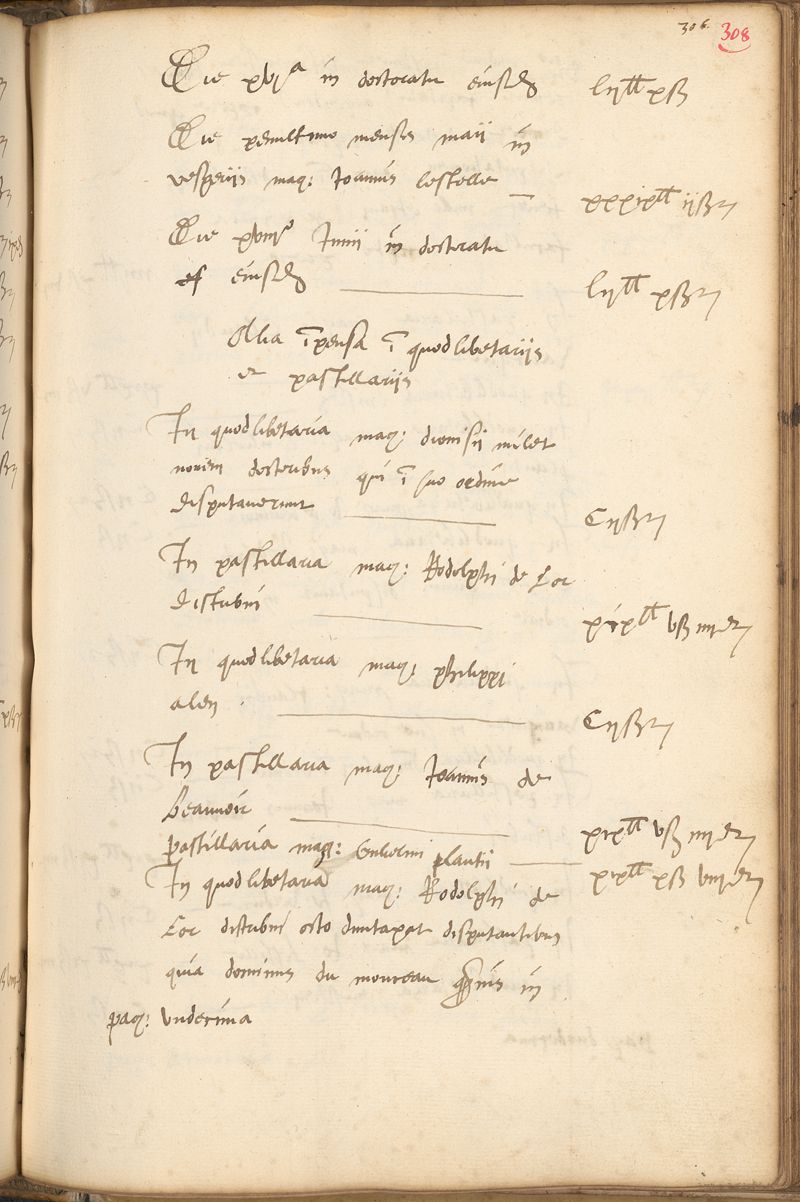 306. 308
Die xvjᵃ in doctoratu eiusdem lijˡˡ xß
Die penultimo mensis maii in
vesperiis mag: Joannis lestelle xxxixˡˡ ijß
Die Junii in doctoratu
eiusdem lijˡˡ xß
Alia impensa in quodlibetariis
et pastillariis
In quodlibetaria mag: dionisii milet
novem doctoribus qui in suo ordine
disputaverunt Cijß
In pastillaria mag: Rodolphi de Lor
distubni xixˡˡ vß iiij
In quodlibetaria mag: philippi
alen Cijß
In pastillaria mag: Joannis de
beauvoir xixˡˡ vß iiij
pastillaria mag: Gulielmi plantii xixˡˡ xß viij
In quodlibetaria mag: Rodolphi de
Lor distubni octo duntaxat disputantibus
quia dominus du monceau in
pag: undecima